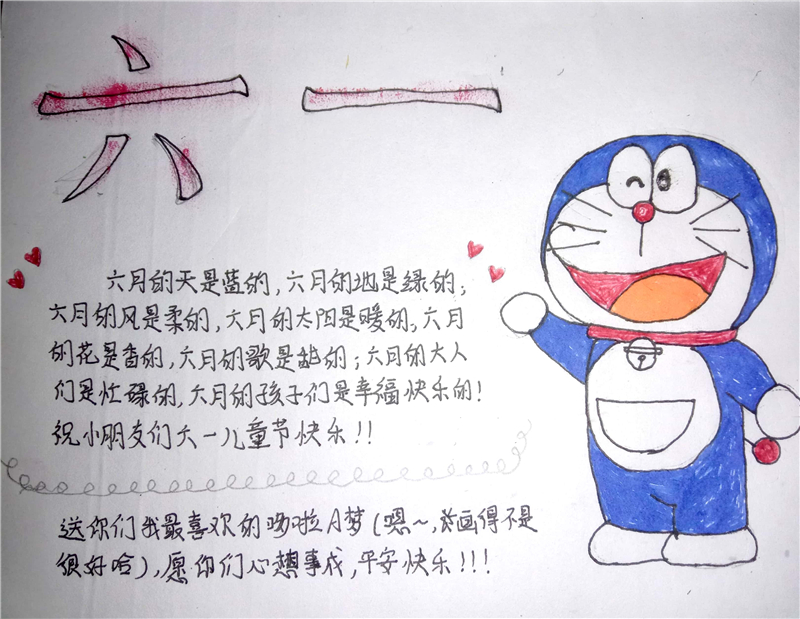 六一
六月的天是蓝的,六月的地是绿的;
六月的风是柔的,六月的太阳是暖的,六月
的花是香的,六月的歌是甜的;六月的大人
们是忙碌的,六月的孩子们是幸福快乐的!
祝小朋友们六一儿童节快乐!!
送你们我最喜欢的哆啦A梦(嗯~,画得不是
很好哈),愿你们心想事成,平安快乐!!!